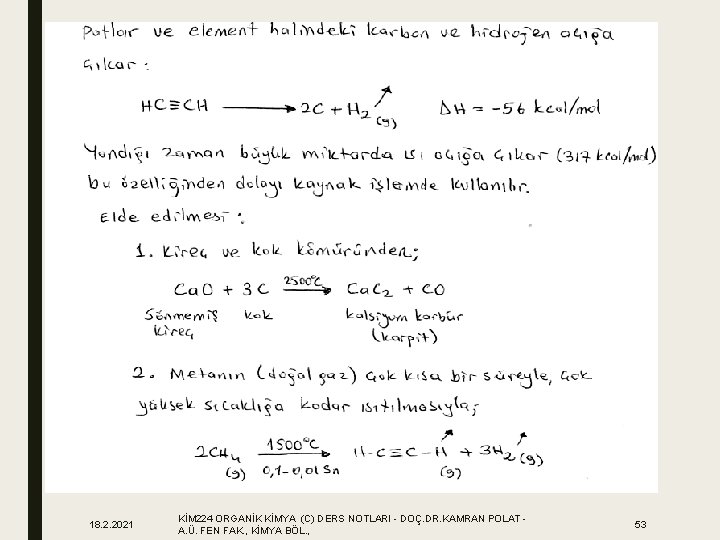 Patlar ve element halindeki karbon ve hidrojen açığa
çıkar :
HC≡CH ⟶ 2C + H₂ (g) ↗ ΔH = -56 kcal/mol
Yandığı zaman büyük miktarda ısı açığa çıkar (317 kcal/mol)
bu özelliğinden dolayı kaynak işlemde kullanılır.
Elde edilmesi :
1. Kireç ve kok kömüründen;
CaO + 3C ⟶ 2500°C CaC₂ + CO
Sönmemiş kok kalsiyum karbür
kireç (karpit)
2. Metanın (doğal gaz) çok kısa bir süreyle, çok
yüksek sıcaklığa kadar ısıtılmasıyla;
2CH₄ (g) ⟶ 1500°C 0,1-0,01 Sn H-C≡C-H (g) ↗ + 3H₂ (g) ↗
18.2.2021
KİM224 ORGANİK KİMYA (C) DERS NOTLARI - DOÇ.DR.KAMRAN POLAT -
A.Ü. FEN FAK., KİMYA BÖL.,
53